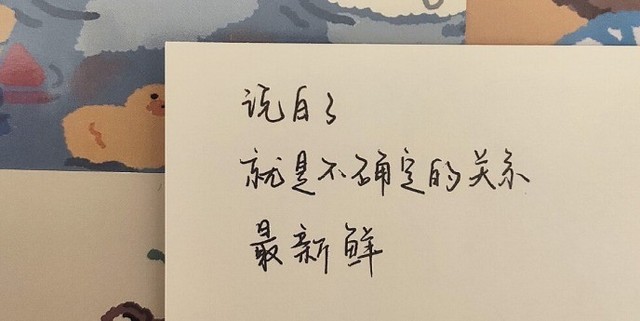 说白了
就是不确定的关系
最新鲜